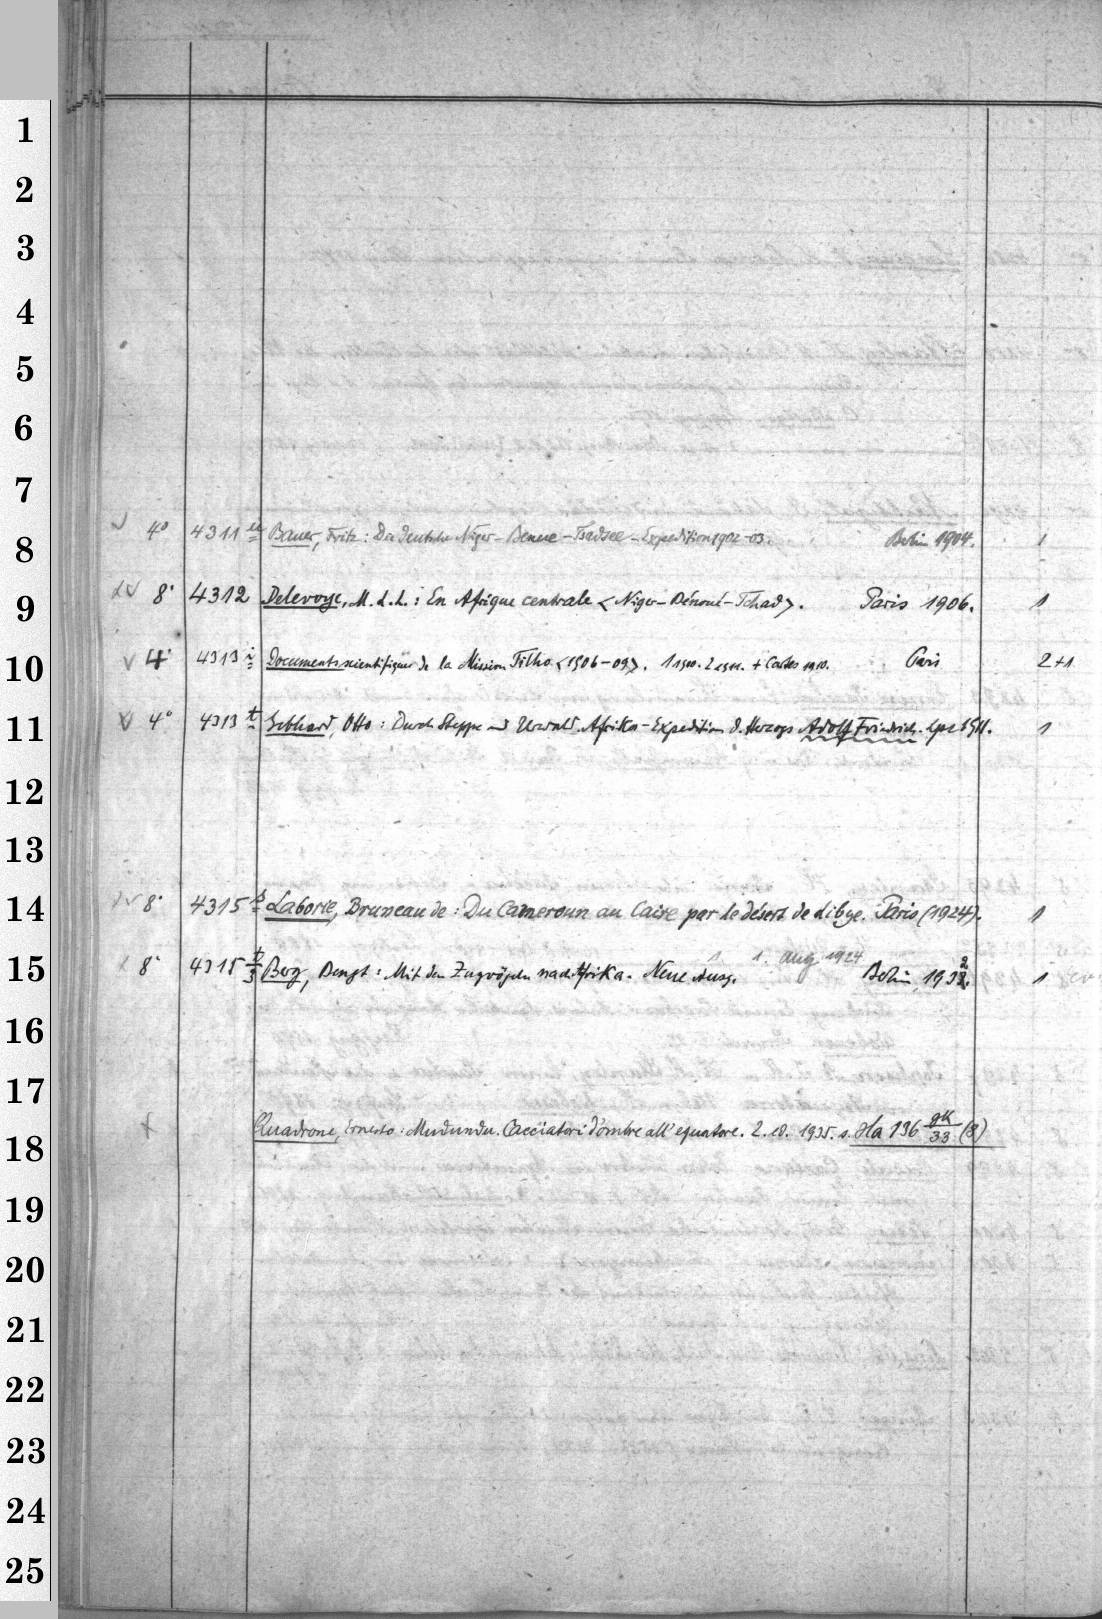 1
2
3
4
5
6
7
8 4° 4311 u Bauer, Fritz: Die Deutsche Niger-Benue-Tsadsee-Expedition 1902-03. Berlin 1904. 1
9 8° 4312 Delevoye, M. d. L.: En Afrique centrale <Niger-Bénoué-Tchad>. Paris 1906. 1
10 4° 4313 i Documents scientifiques de la Mission Tilho <1906-09>. 1 1910. 2 1911. + Cartes 1910. Paris 2+1
11 4° 4313 t Gebhard, Otto: Durch Steppe und Urwald. Afrika-Expedition d. Herzogs Adolf Friedrich. Lpz 1911. 1
12
13
14 8° 4315 Laborie, Bruneau de: Du Cameroun au Caire par le désert de Libye. Paris (1924). 1
1. Aug. 1924
15 8° 4315 Berg, Bengt: Mit den Zugvögeln nach Afrika. Neue Ausg. Berlin, 1932. 1
16
17
18 Quadrone, Ernesto: Mudundu. Cacciatori d'ombre all'equatore. 2. ed. 1935. s. 136 gk/33 (8)
19
20
21
22
23
24
25